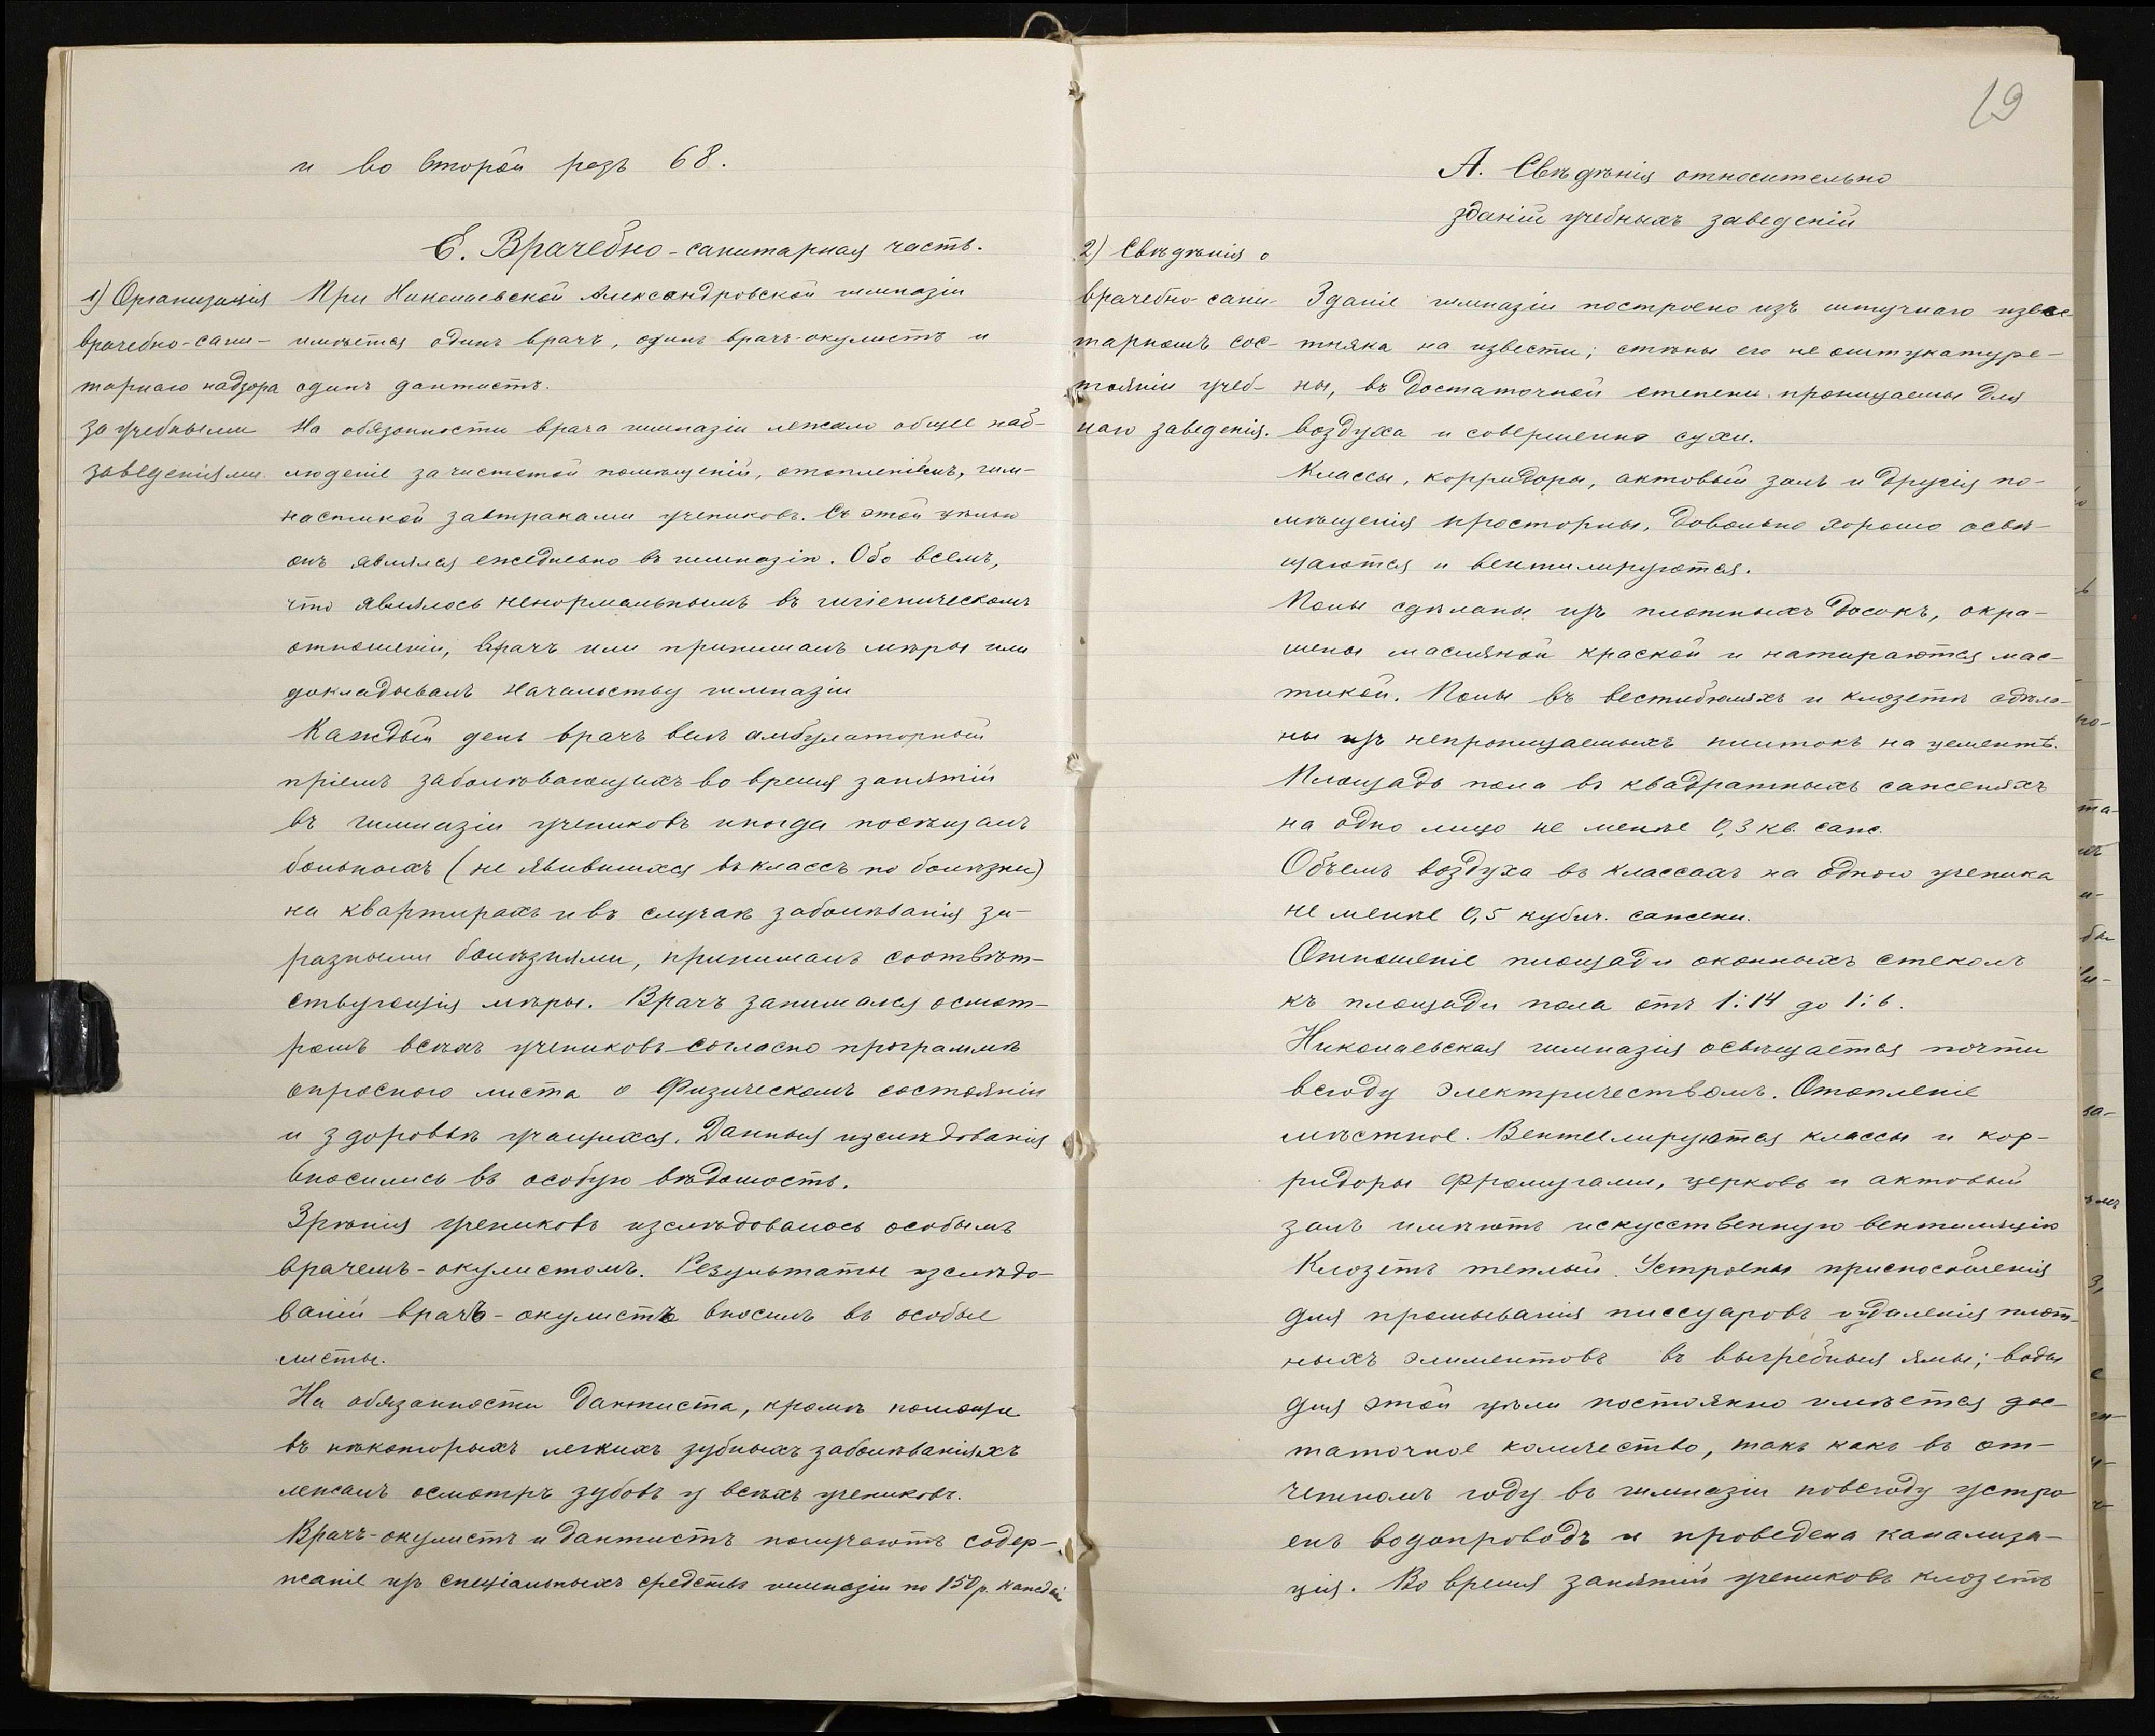 и во второй разъ 68.
Е. Врачебно-санитарная часть.
1) Организація
врачебно-сани-
тарнаго надзора
за учебными
заведеніями.
При Николаевской Александровской гимназіи
имѣется одинъ врачъ, одинъ врачъ-окулистъ и
одинъ дантистъ.
На обязанности врача гимназіи лежало общее наб-
людение за чистотой помѣщеній, отопленіемъ, гим-
настикой завтраками учениковъ. Съ этой цѣлью
онъ являлся ежедневно въ гимназію. Обо всемъ,
что являлось ненормальнымъ въ гигіеническомъ
отношеніи, врачъ или принималъ мѣры или
докладывалъ начальству гимназіи
Каждый день врачъ велъ амбулаторный
пріемъ заболѣвающихъ во время занятій
въ гимназіи учениковъ иногда посѣщалъ
больныхъ (не явившихся въ классъ по болѣзни)
на квартирахъ и въ случаѣ заболѣванія за-
разными болѣзнями, принималъ соотвѣт-
ствующія мѣры. Врачъ занимался осмот-
ромъ всѣхъ учениковъ согласно программѣ
опроснаго листа о физическомъ состояніи
и здоровьѣ учащихся. Данныя изслѣдованія
вносились въ особую вѣдомость.
Зрѣнія учениковъ изслѣдовалось особымъ
врачемъ-окулистомъ. Результаты изслѣдо-
ваній врачъ-окулистъ вносилъ въ особые
листы.
На обязанности дантиста, кромѣ помощи
въ нѣкоторыхъ легкихъ зубныхъ заболѣваніяхъ
лежалъ осмотръ зубовъ у всѣхъ учениковъ.
Врачъ-окулистъ и дантистъ получаютъ содер-
жаніе изъ спеціальныхъ средствъ гимназіи по 150 р. каждый
19
А. Свѣдѣнія относительно
зданій учебныхъ заведеній
2) Свѣдѣнія о
врачебно сани-
тарномъ сос-
тояніи учеб-
наго заведенія.
Зданіе гимназіи построено изъ штучнаго извес-
тняка на извести; стѣны его не оштукатуре-
ны, въ достаточной степени проницаемы для
воздуха и совершенно сухи.
Классы, корридоры, актовый залъ и другія по-
мѣщенія просторны, довольно хорошо освѣ-
щаются и вентилируются.
Полы сдѣланы изъ плотныхъ досокъ, окра-
шены масляной краской и натираются мас-
тикой. Полы въ вестибюляхъ и клозетѣ сдѣла-
ны изъ непроницаемыхъ плитокъ на цементѣ.
Площадь пола въ квадратныхъ саженяхъ
на одно лицо не менѣе 0,3 кв. саж.
Объемъ воздуха въ классахъ на одного ученика
не менѣе 0,5 кубич. сажени.
Отношеніе площади оконныхъ стеколъ
къ площади пола отъ 1:14 до 1:6.
Николаевская гимназія освѣщается почти
всюду электричествомъ. Отопленіе
мѣстное. Вентилируются классы и кор-
ридоры фрамугами, церковь и актовый
залъ имѣютъ искусственную вентиляцію
Клозетъ теплый. Устроены приспособленія
для промыванія писсуаровъ и удаленія плот-
ныхъ элиментовъ въ выгребныя ямы; воды
для этой цѣли постоянно имѣется дос-
таточное количество, такъ какъ въ от-
четномъ году въ гимназіи повсюду устро
енъ водопроводъ и проведена канализа-
ція. Во время занятій учениковъ клозетъ